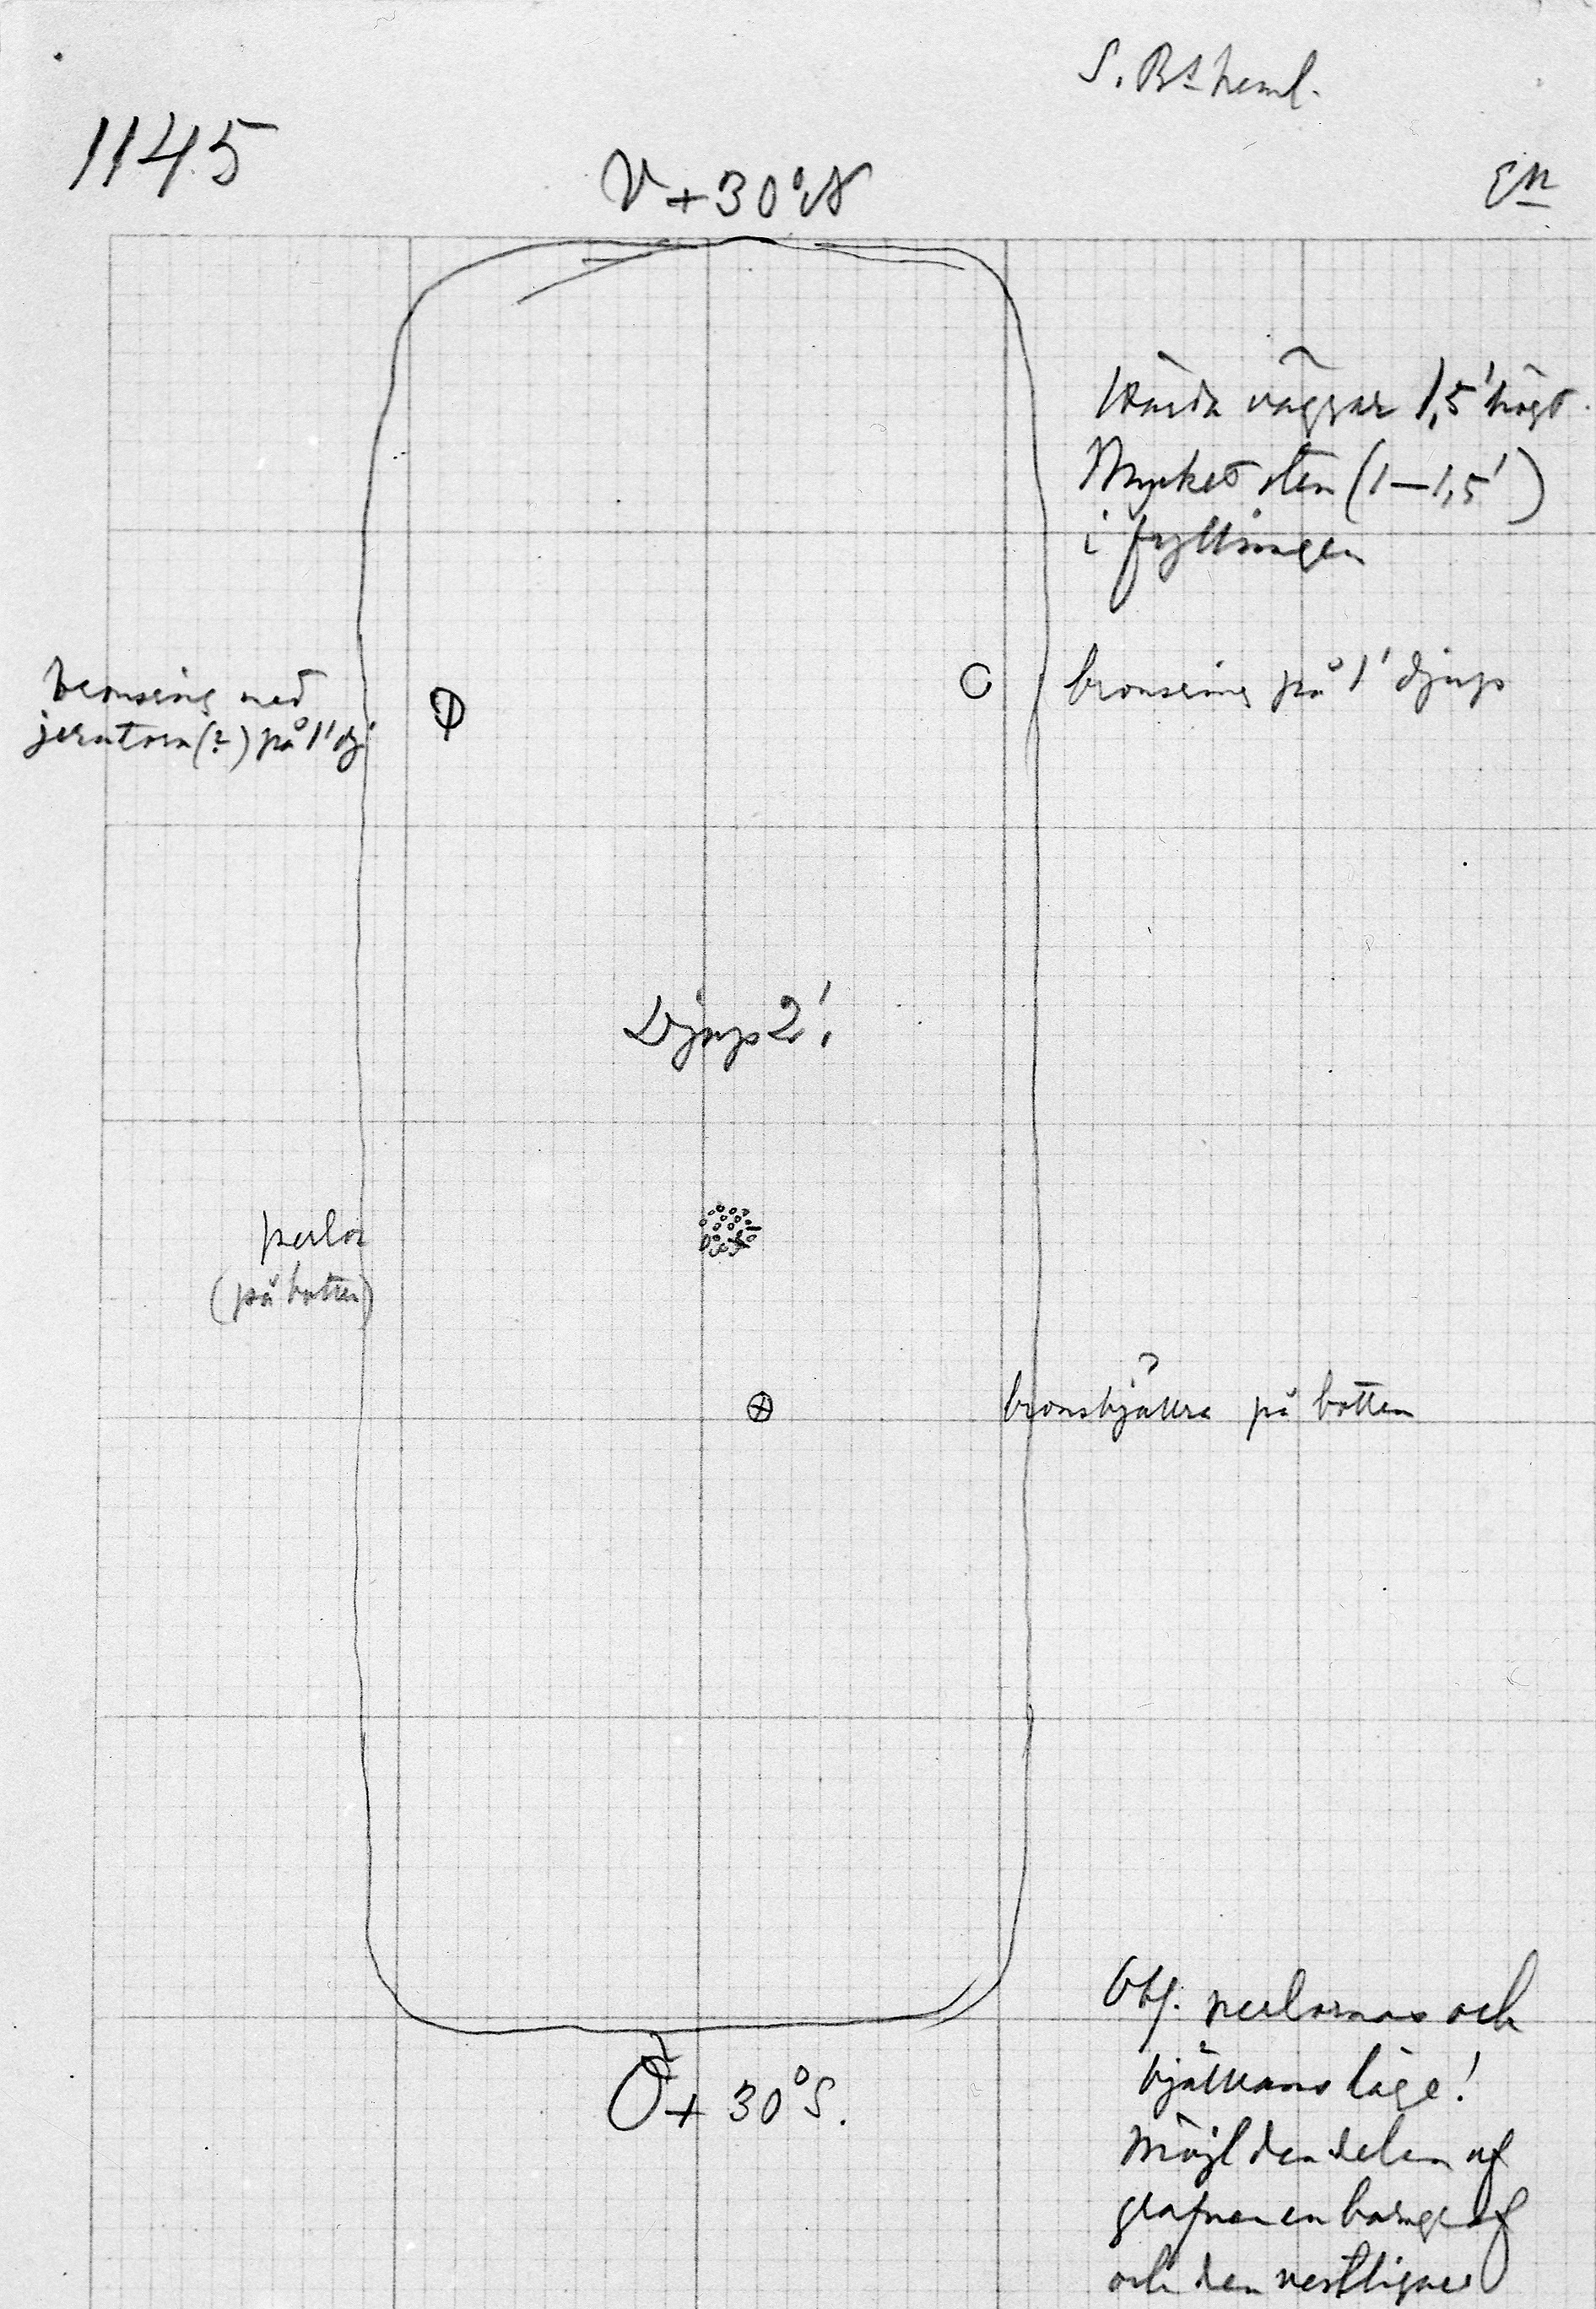 S. Bs heml.
1145
V+30°N
En
Hårda väggar 1,5' högt.
Mycket sten (1—1,5')
i fyllningen
bronsring med
jerntorn(?) på 1' dj
bronsring på 1' djup
Djup 2'.
perlor
(på botten)
?
bronsbjällra på botten
Ö+30°S.
Obs. perlornas och
bjällrans läge!
Möjl den delen af
grafven en barngraf
och den vestligare